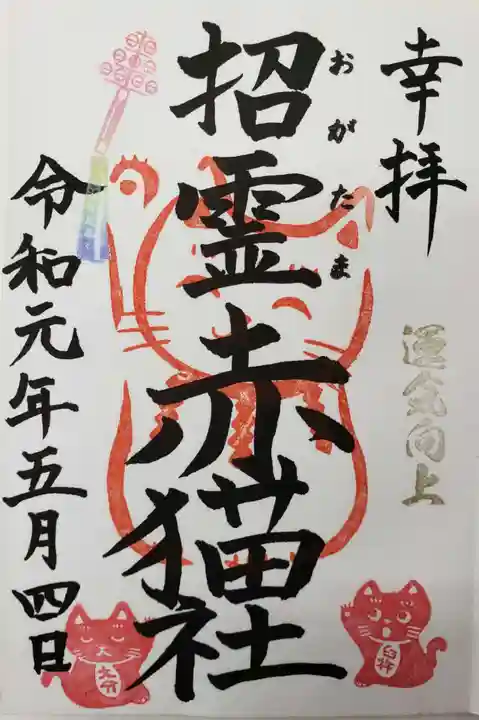 幸拝
運気向上
招霊赤猫社
おがたま
令和元年五月四日
大分
臼杵